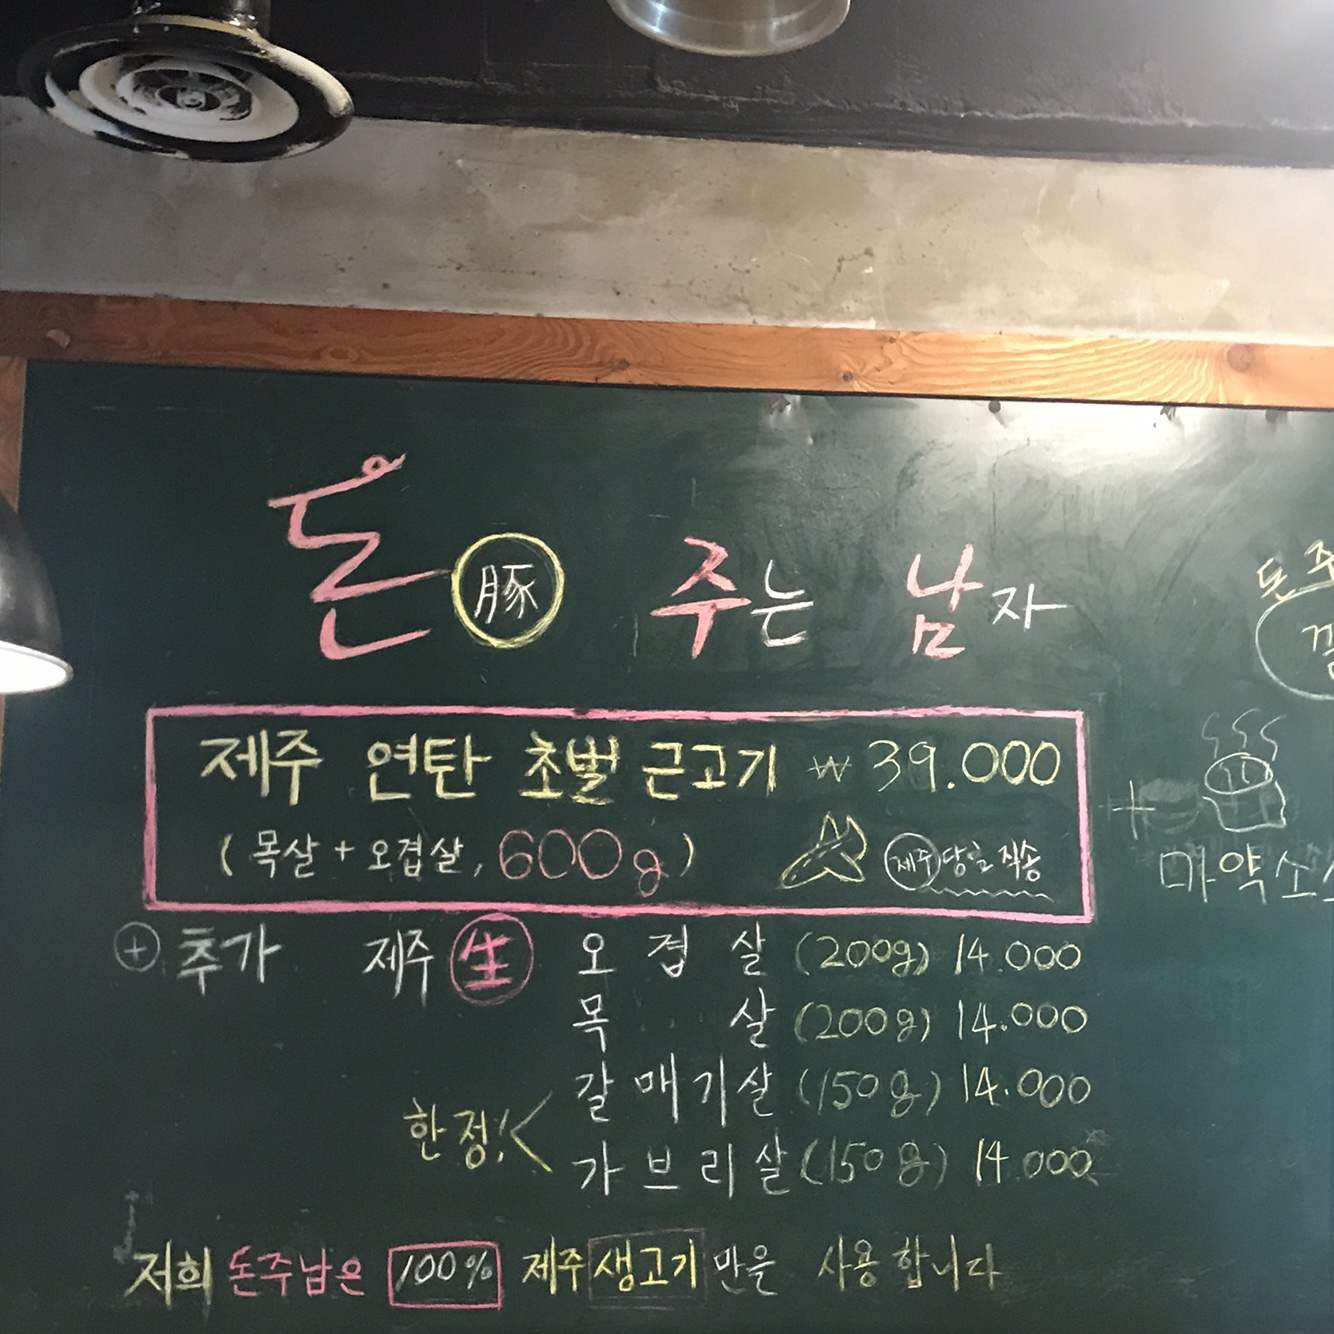 돈 豚 주는 남자
제주 연탄 초벌 근고기 ₩ 39.000
(목살 + 오겹살, 600g) 제주 당일 직송
+ 추가 제주 生 오겹살 (200g) 14.000
목살 (200g) 14.000
한정! < 갈매기살 (150g) 14.000
가브리살 (150g) 14.000
저희 돈주남은 100% 제주 생고기 만을 사용합니다
돈주
+
마약소